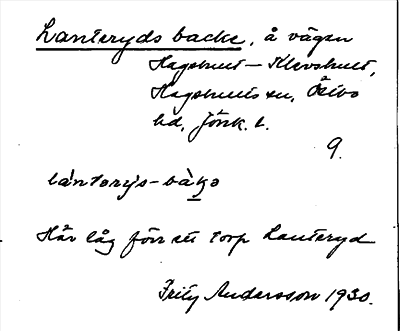 Lanteryds backe, å vägen
Hagshult – Klevshult,
Hagshults sn, Östbo
hd, Jönk. l.
9.
lántarỳs-bàkə
Här låg förr ett torp Lanteryd
Frity Andersson 1930.